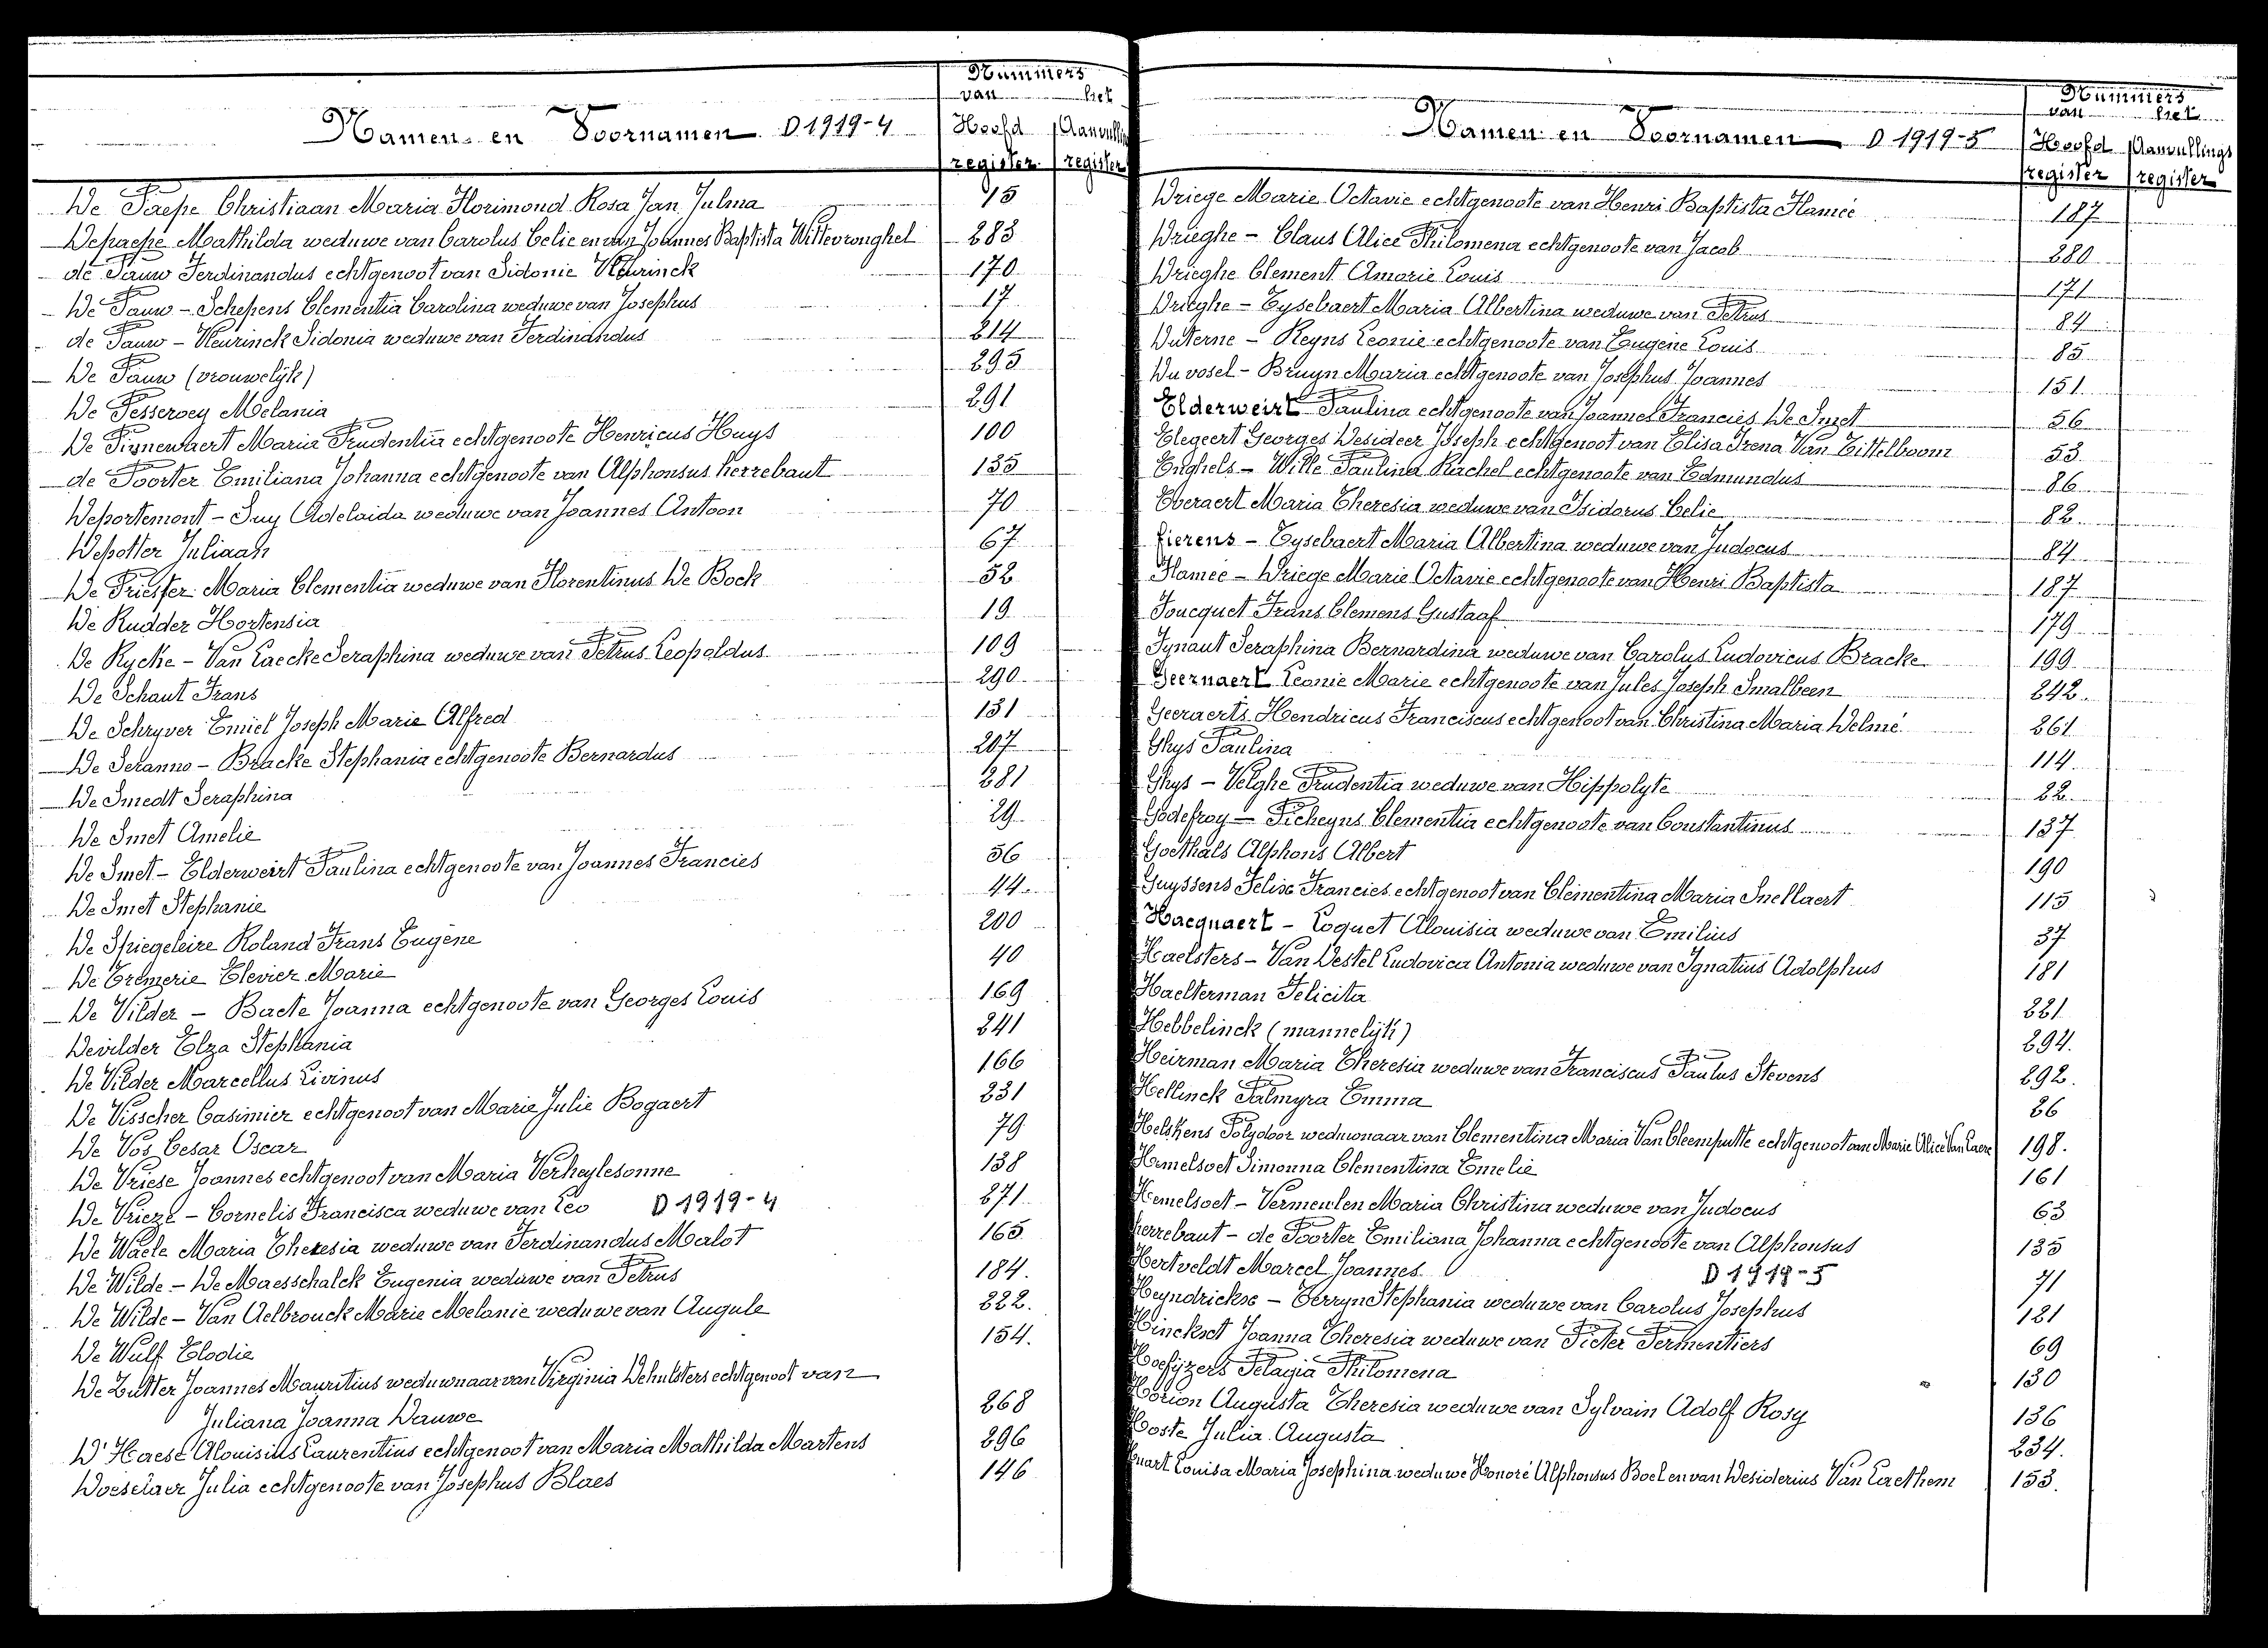 Nummers
van het
Namen en Voornamen D 1919-4 Hoofd Aanvullings
register register
De Paepe Christiaan Maria Florimond Rosa Jan Julma 15
Depaepe Mathilda weduwe van Carolus Celie en van Joannes Baptista Wittevronghel 283
de Pauw Ferdinandus echtgenoot van Sidonie Heurinck 170
De Pauw - Schepens Clementia Carolina weduwe van Josephus 17
de Pauw - Heurinck Sidonia weduwe van Ferdinandus 214
De Pauw (vrouwelijk) 295
De Pesseroey Melania 291
De Pinnewaert Maria Prudentia echtgenoote Henricus Huys 100
de Poorter Emiliana Johanna echtgenoote van Alphonsus herrebaut 135
Deportemont - Suy Adelaida weduwe van Joannes Antoon 70
Depotter Juliaan 67
De Priester Maria Clementia weduwe van Florentinus De Bock 52
De Rudder Hortensia 19
De Rycke - Van Laecke Seraphina weduwe van Petrus Leopoldus 109
De Schaut Frans 290
De Schryver Emiel Joseph Marie Alfred 131
De Seranno - Bracke Stephania echtgenoote Bernardus 207
De Smedt Seraphina 281
De Smet Amelie 29
De Smet - Elderweirt Paulina echtgenoote van Joannes Francies 56
De Smet Stephanie 44
De Spiegeleire Roland Frans Eugène 200
De Tremerie Elevier Marie 40
De Vilder - Baete Joanna echtgenoote van Georges Louis 169
Devilder Elza Stephania 241
De Vilder Marcellus Livinus 166
De Visscher Casimier echtgenoot van Marie Julie Bogaert 231
De Vos Cesar Oscar 79
De Vriese Joannes echtgenoot van Maria Verheylesonne 138
De Vrieze - Cornelis Francisca weduwe van Leo D 1919-4 271
De Waele Maria Theresia weduwe van Ferdinandus Malot 165
De Wilde - De Maesschalck Eugenia weduwe van Petrus 184.
De Wilde - Van Aelbrouck Marie Melanie weduwe van Augule 222.
De Wulf Elodie 154.
De Zutter Joannes Mauritius weduwnaar van Virginia Dehulsters echtgenoot van
Juliana Joanna Dauwe 268
D'Haese Alouisius Laurentius echtgenoot van Maria Mathilda Martens 296
Doeselaer Julia echtgenoote van Josephus Blaes 146
Nummers
van het
Namen en Voornamen D 1919-5 Hoofd Aanvullings
register register
Driege Marie Octavie echtgenoote van Henri Baptista Flamée 187
Drieghe - Claus Alice Philomena echtgenoote van Jacob 280
Drieghe Clement Amorie Louis 171
Drieghe - Eysebaert Maria Albertina weduwe van Petrus 84
Duterne - Reyns Leonie echtgenoote van Eugène Louis 85
Du vosel - Bruyn Maria echtgenoote van Josephus Joannes 151
Elderweirt Paulina echtgenoote van Joannes Francies De Smet 56
Elegeert Georges Desideer Joseph echtgenoot van Elisa Irena Van Eittelboom 53
Enghels - Wille Paulina Rachel echtgenoote van Edmundus 86
Everaert Maria Theresia weduwe van Isidorus Celie 82
fierens - Eysebaert Maria Albertina weduwe van Judocus 84
Flamée - Driege Marie Octavie echtgenoote van Henri Baptista 187
Foucquet Frans Clemens Gustaaf 179
Fynaut Seraphina Bernardina weduwe van Carolus Ludovicus Bracke 199
Geernaert Leonie Marie echtgenoote van Jules Joseph Smalbeen 242
Geeraerts Hendricus Franciscus echtgenoot van Christina Maria Delmé 261
Ghys Paulina 114
Ghys - Velghe Prudentia weduwe van Hippolyte 22
Godefroy - Picheyns Clementia echtgenoote van Constantinus 137
Goethals Alphons Albert 190
Guyssens Felix Francies echtgenoot van Clementina Maria Snellaert 115
Hacquaert - Loquet Alouisia weduwe van Emilius 37
Haelsters - Van Destel Ludovica Antonia weduwe van Ignatius Adolphus 181
Haelterman Felicita 221
Hebbelinck (mannelijk) 294.
Heirman Maria Theresia weduwe van Franciscus Paulus Stevens 292.
Hellinck Palmyra Emma 26
Helskens Polydoor weduwnaar van Clementina Maria Van Cleemputte echtgenoot van Marie Alice Van Laere 198.
Hemelsoet Simonna Clementina Emelie 161
Hemelsoet - Vermeulen Maria Christina weduwe van Judocus 63
herrebaut - de Poorter Emiliana Johanna echtgenoote van Alphonsus 135
Hertveldt Marcel Joannes D 1919-5 71
Heyndrickse - Terryn Stephania weduwe van Carolus Josephus 121
Hinckset Joanna Theresia weduwe van Pieter Permentiers 69
Hoefijzers Pelagia Philomena 130
Horion Augusta Theresia weduwe van Sylvain Adolf Rosy 136
Hoste Julia Augusta 234.
Huart Louisa Maria Josephina weduwe Honoré Alphonsus Boel en van Desiderius Van Laethem 153.